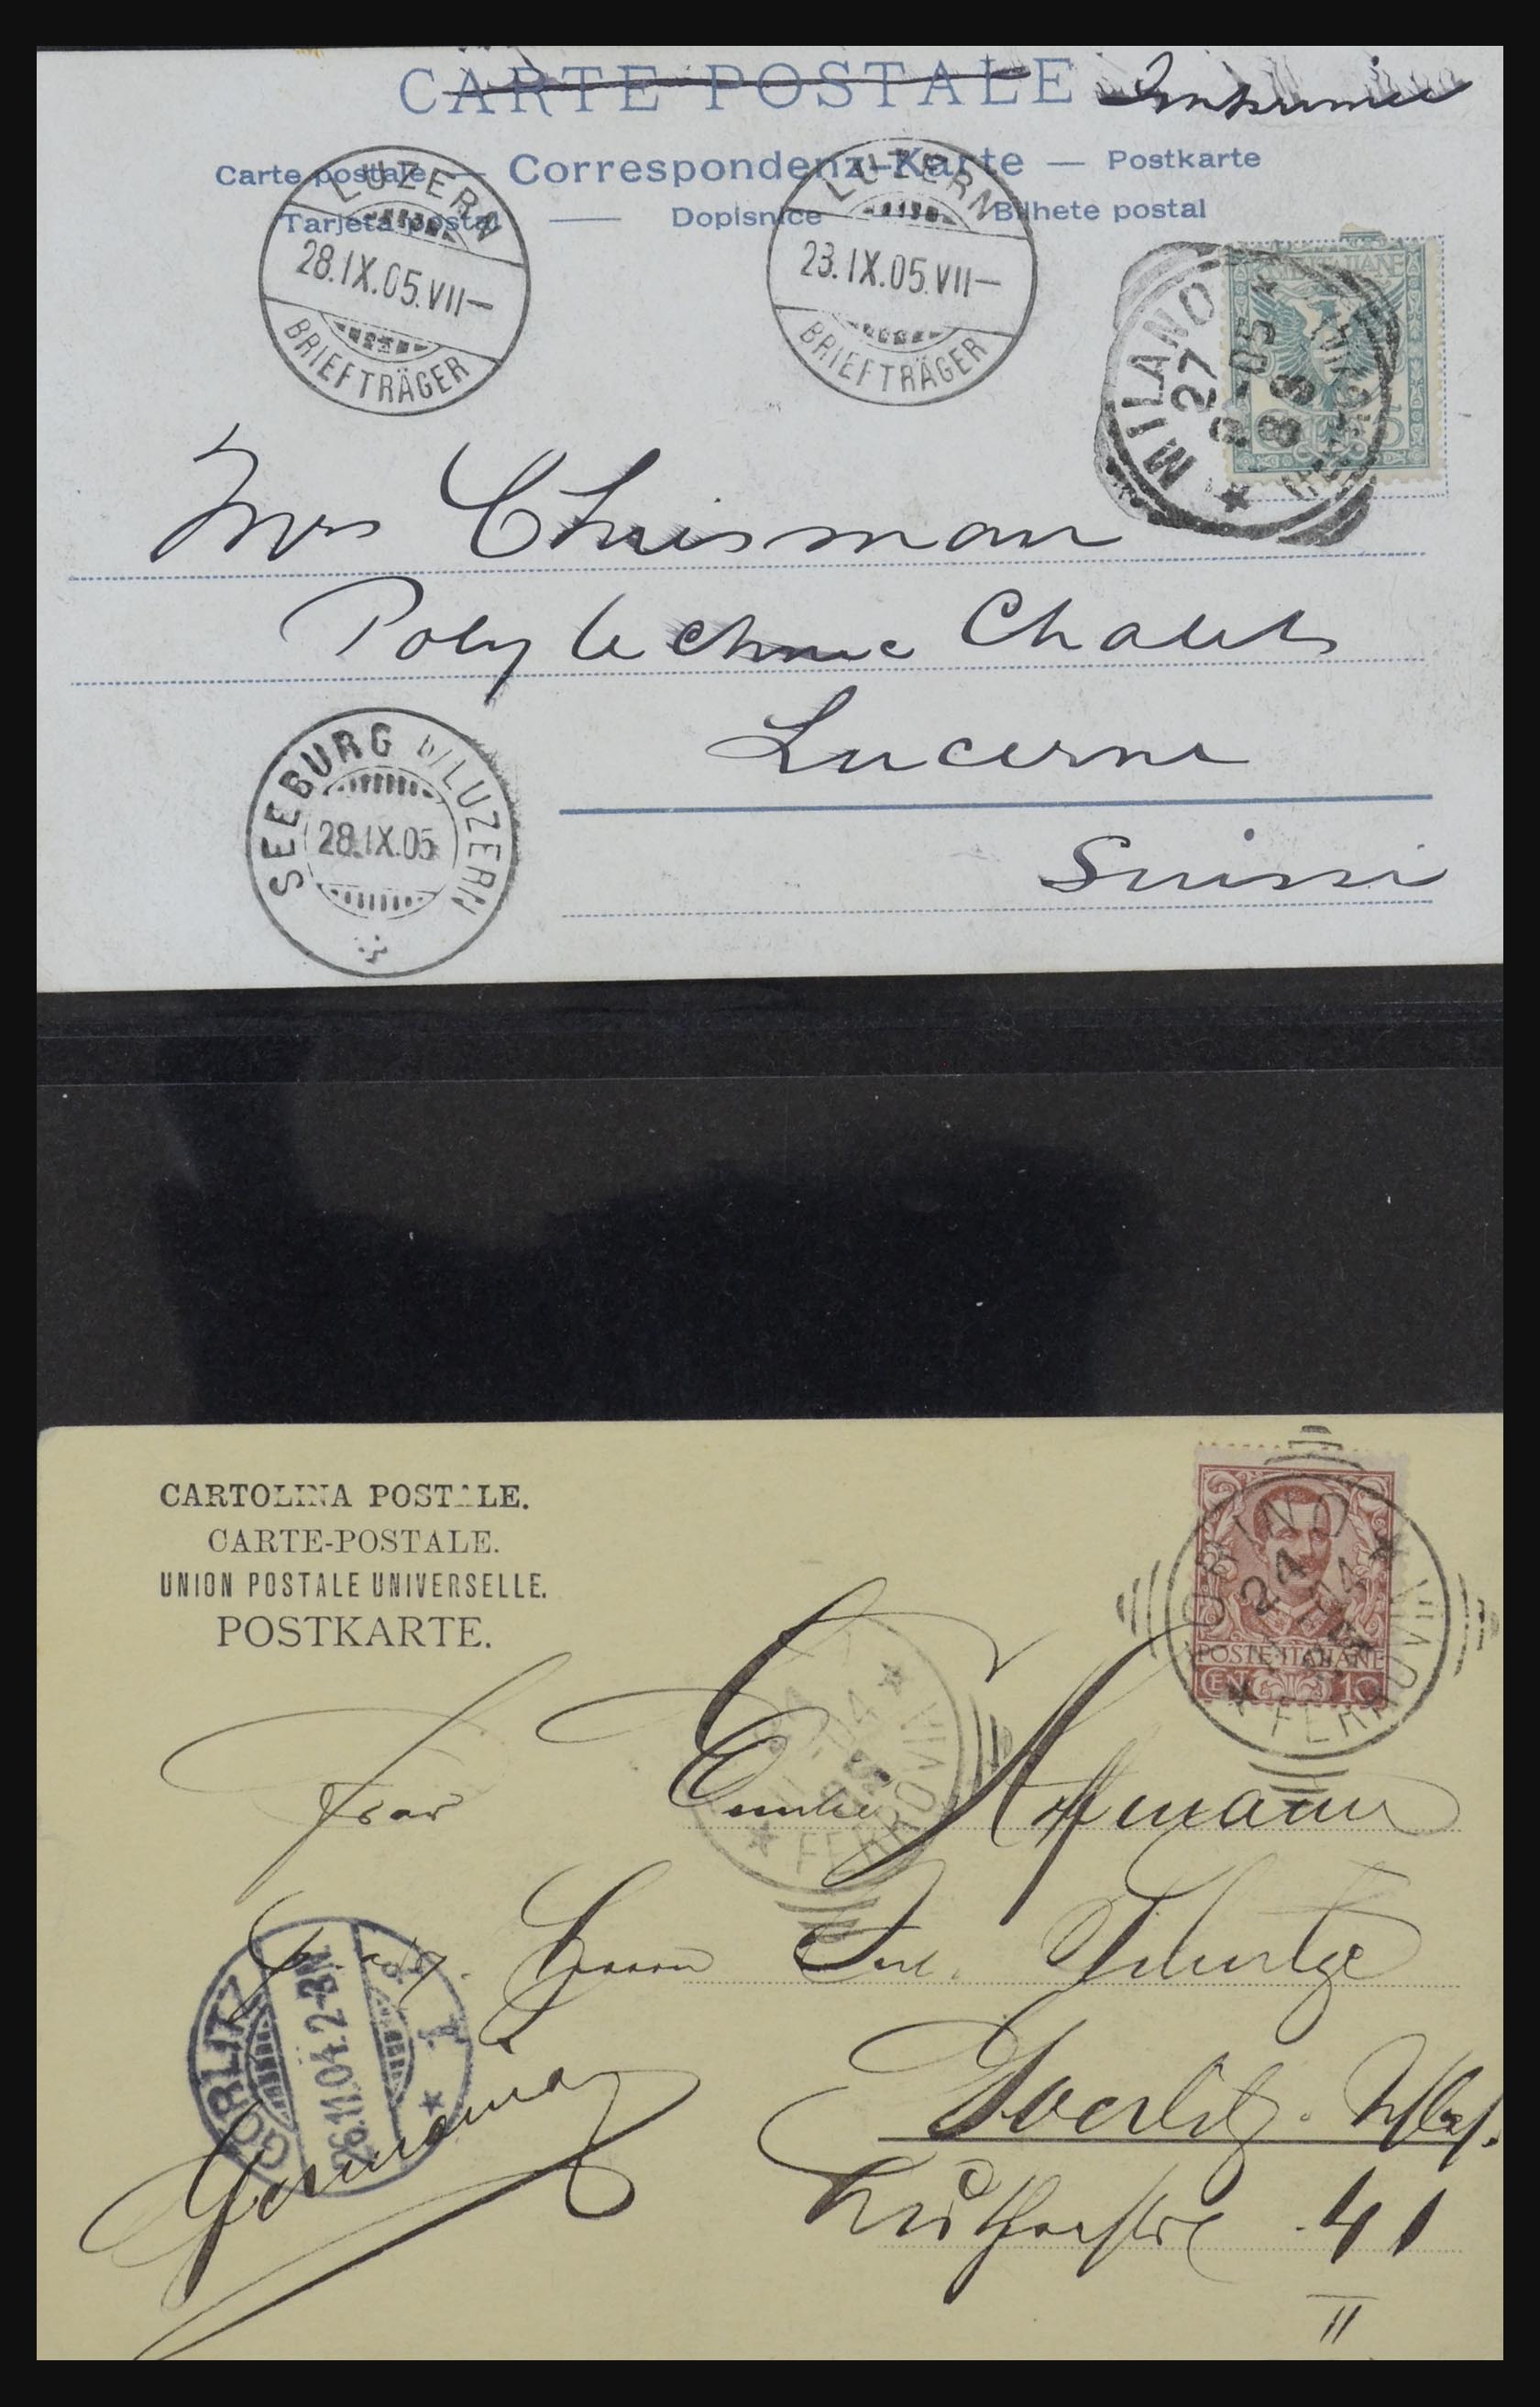 CARTE POSTALE Imprimée
Carte postale — Correspondenz-Karte — Postkarte
Tarjeta postal — Dopisnice Bilhete postal
LUZERN
28.IX.05.VII—
BRIEFTRÄGER
LUZERN
23.IX.05.VII—
BRIEFTRÄGER
POSTE ITALIANE
5
MILANO
27
9-05
8S
FERROVIA
Mrs Chrisman
Polytechnic Chalets
Lucerne
Suisse
SEEBURG b/LUZERN
28.IX.05
CARTOLINA POSTALE.
CARTE-POSTALE.
UNION POSTALE UNIVERSELLE.
POSTKARTE.
POSTE·ITALIANE
CENT 10
TORINO
24
11-04
FERROVIA
24
11-04
FERROVIA
Frau Emilie Hoffmann
Herrn
Goerlitz.
41
II
GÖRLITZ
26.11.04.2-3N.
1
Germania